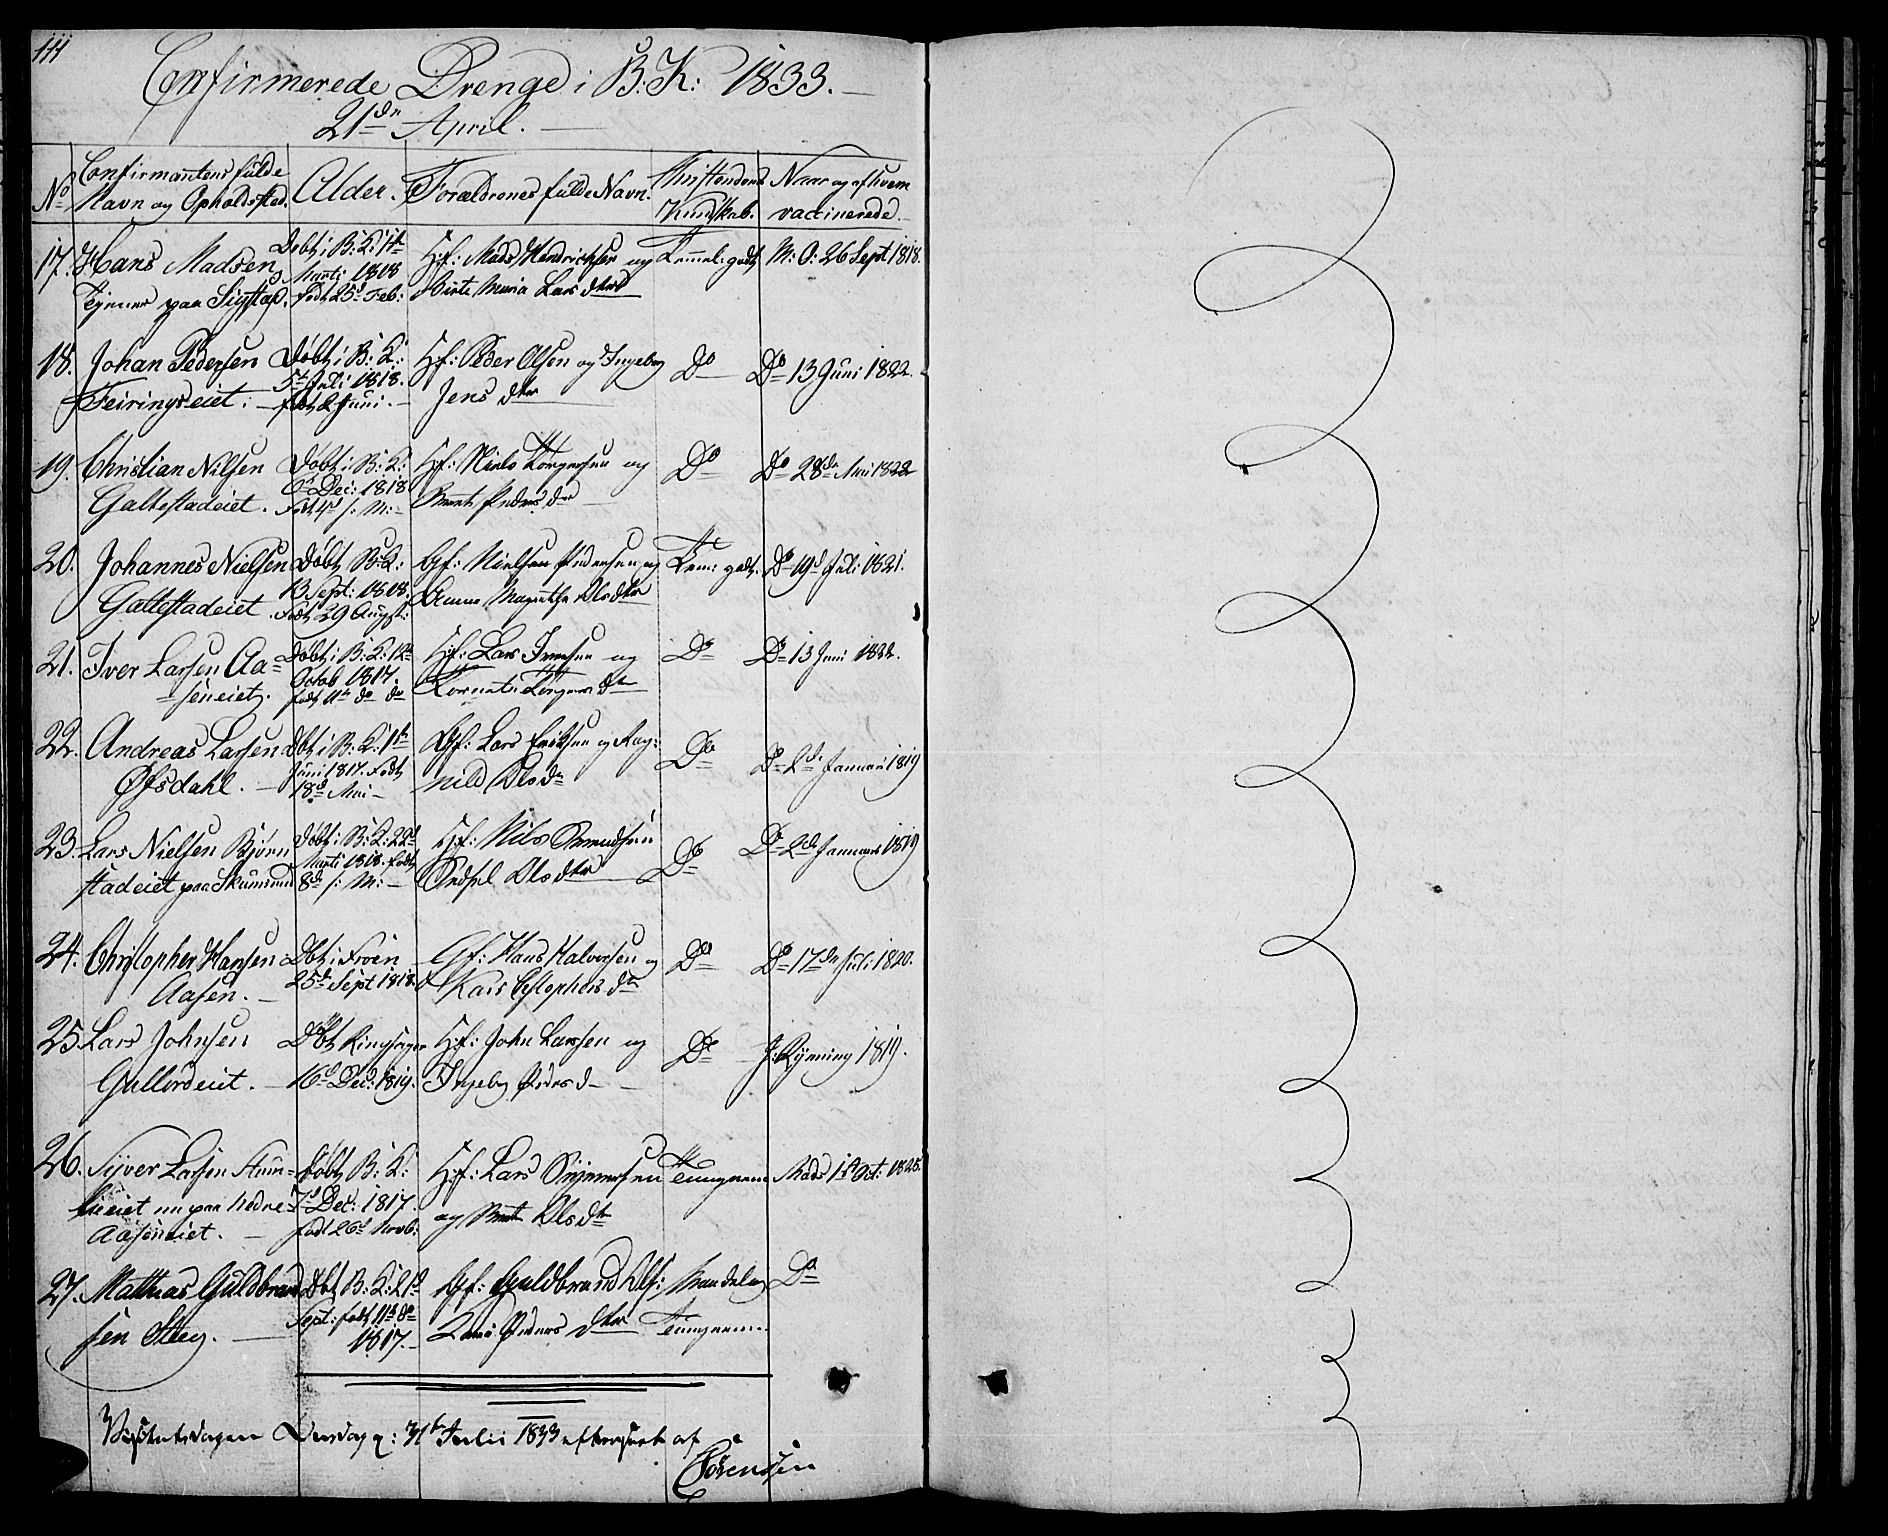 111
Confirmerede Drenge i B: K: 1833.
21de April.
No
Confirmantens fulde
Navn og Opholdssted.
Alder.
Forældrenes fulde Navn.
Christendoms
Kundskab.
Naar og af hvem
vaccinerede.
17. Hans Madsen
paa
Døbt i B: K: 1te
Marti 1818
født 25d Feb:
Gf: Mads Hendrichsen og
Birte Maria Lars dtr
Temmel: godt
M: O: 26 Sept 1818.
18. Johan Pedersen
Feiringseiet.
Døbt i B: K:
5te Juli 1818.
født 2 Juni.
Hf: Peder Olsen og Ingeborg
Jens dtr
Do
Do 13 Juni 1822.
19. Christian Nilsen
Galtestadeiet.
Døbt i B: K:
6d Dec: 1818
født 4d s: M:
Hf: Niels Torgersen og
Berte Peders dr
Do
Do 28de Mai 1822
20. Johannes Nielsen
Galtestadeiet
Døbt B: K:
13 Sept: 1818.
født 29 August:
Gf: Nielsen Pedersen og
Anne Magrethe Olsdtr
Tem: godt.
Do 19d Juli 1821.
21. Iver Larsen Aa-
seneiet.
Døbt i B: K: 12te
Octob 1817.
født 11te do do
Hf: Lars Iversen og
Torgers dtr
Do
Do 13 Juni 1822.
22. Andreas Larsen
Øfsdahl.
Døbt i B: K: 1te
Juni 1817. født
18d Mai
Gf: Lars Eriksen og Rag-
nild Olsdr
Do
Do 2d Januari 1819
23. Lars Nielsen Bjørn
stadeiet paa
Døbt i B: K: 22d
Marti 1818. født
8de s: M:
Hf: Nils Amundsen
Olsdtr
Do
Do 2de Januari 1819
24. Christopher Hansen
Aasen.
Døbt i Froen
25de Sept 1818.
Gf: Hans Halvorsen og
Kari Cristophers dr
Do
Do 17de Juli 1820.
25. Lars Johnsen
Gullerdeiet.
Døbt Ringsager
16d Dec: 1819.
Hf: John Larsen og
Ingeborg Peders d
Do
J: Rynning 1819.
26. Syver Larsen
nu paa Nedre
Aaseneiet.
Døbt B: K:
7d Dec: 1817.
født 26d Novb:
Hf: Lars
og Berte Olsdtr
Tungnem
Mads 1d Oct: 1825.
27. Mathias Guldbrand
sen Steeg.
Døbt B: K: 21d
Sept: født 11te do
1817.
Gf: Guldbrand Ols:
Peders dtr
Maadelig
Tungnem
Do
Visitatsdagen 31te Julii 1833 efterseet af
Sørenssen